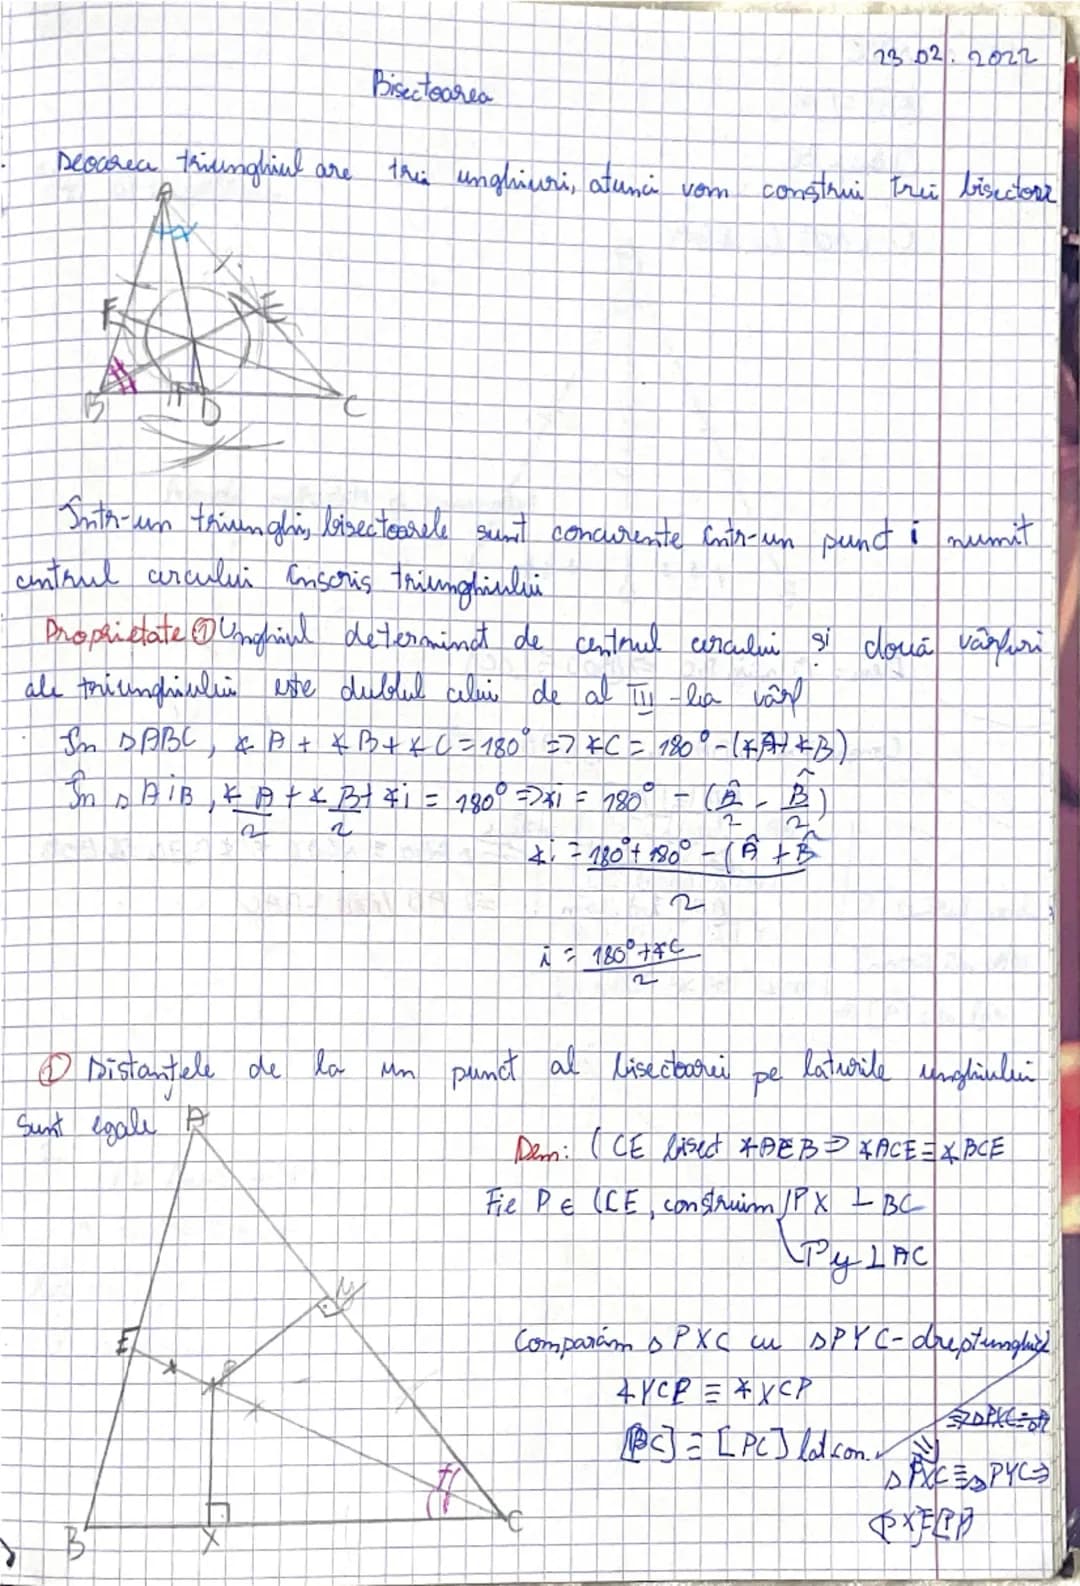 23.02.2022
Bisectoarea
Deoarea triunghiul are trei unghiuri, atunci vom construi trei bisectoare
A
F
E
B
D
C
Într-un triunghi, bisectoarele sunt concurente într-un punct i numit
centrul cercului înscris triunghiului
Proprietate ① Unghiul determinat de centrul cercului și două vârfuri
ale triunghiului este dublul celui de al III-lea vârf
În △ABC, ∢A + ∢B + ∢C = 180° => ∢C = 180° - (∢A + ∢B)
În △AiB, ∢A/2 + ∢B/2 + ∢i = 180° => ∢i = 180° - (Â/2 - B̂/2)
∢i = 180° + 180° - (Â + B̂ / 2
i = 180° + ∢C / 2
① Distanțele de la un punct al bisectoarei pe laturile unghiului
sunt egale
A
Dem: (CE bisect ∢AEB => ∢ACE ≡ ∢BCE
Fie P ∈ (CE, construim PX ⊥ BC
Py ⊥ AC
y
Comparăm △PXC cu △PYC - dreptunghic
E
P
∢YCP ≡ ∢XCP
[PC] ≡ [PC] lat com.
△PXC ≡ △PYC =>
B
X
C